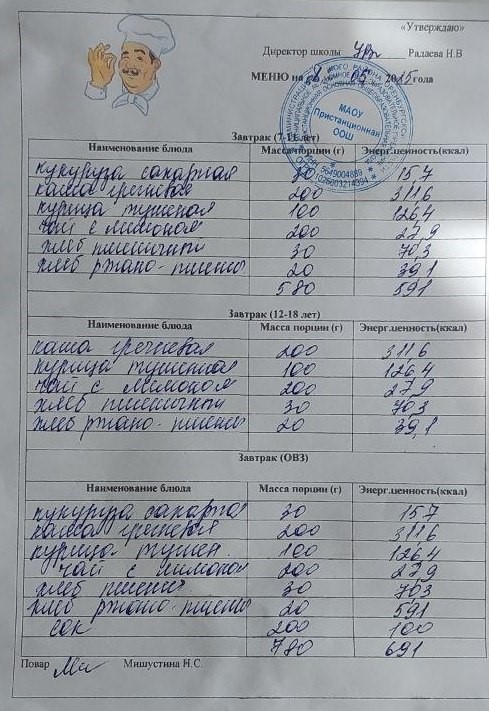 «Утверждаю»
Директор школы Радаева Н.В
МЕНЮ на 8 05 2012 года
МАОУ
Пристанционная
ООШ
Завтрак (7-11 лет)
Наименование блюда Масса порции (г) Энерг.ценность(ккал)
кукуруза сахарная 15.7
каша гречневая 200 311.6
курица тушеная 100 126.4
чай с лимоном 200 27,9
хлеб пшеничный 30 70,3
хлеб ржано-пшенич 20 39,1
580 591
Завтрак (12-18 лет)
Наименование блюда Масса порции (г) Энерг.ценность(ккал)
каша гречневая 200 311.6
курица тушеная 100 126.4
чай с лимоном 200 27,9
хлеб пшеничный 30 70.3
хлеб ржано-пшенич 20 39,1
Завтрак (ОВЗ)
Наименование блюда Масса порции (г) Энерг.ценность(ккал)
кукуруза сахарная 30 15.7
каша гречневая 200 311.6
курица тушен. 100 126.4
чай с лимоном 200 27.9
хлеб пшенич 30 70.3
хлеб ржано-пшенич 20 591
сок 200 100
780 691
Повар Мишустина Н.С.